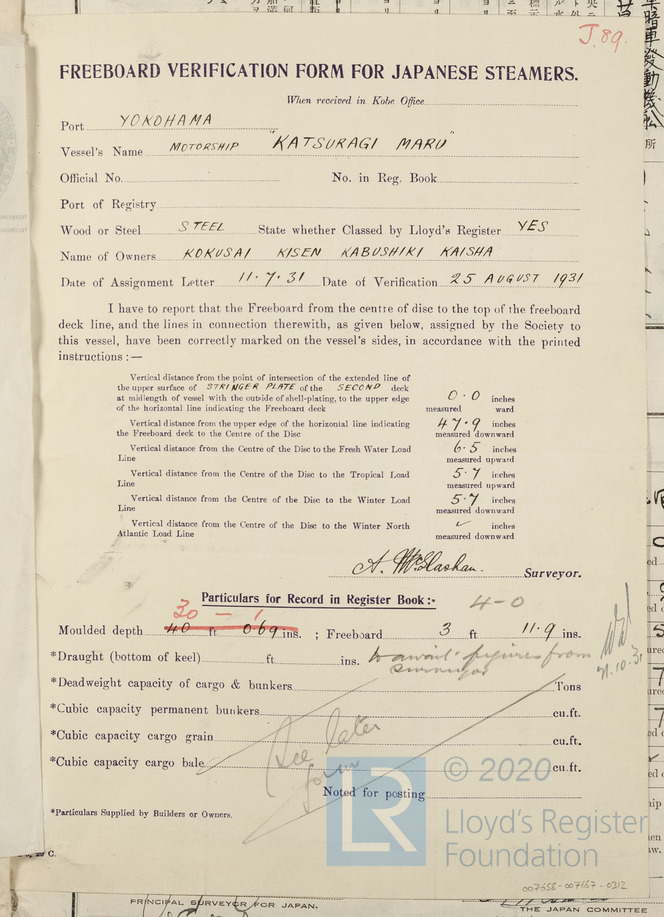 J.89.
FREEBOARD VERIFICATION FORM FOR JAPANESE STEAMERS.
When received in Kobe Office
Port YOKOHAMA
Vessel's Name MOTORSHIP "KATSURAGI MARU"
Official No. No. in Reg. Book
Port of Registry
Wood or Steel STEEL State whether Classed by Lloyd's Register YES
Name of Owners KOKUSAI KISEN KABUSHIKI KAISHA
Date of Assignment Letter 11.7.31 Date of Verification 25 AUGUST 1931
I have to report that the Freeboard from the centre of disc to the top of the freeboard
deck line, and the lines in connection therewith, as given below, assigned by the Society to
this vessel, have been correctly marked on the vessel's sides, in accordance with the printed
instructions :—
Vertical distance from the point of intersection of the extended line of
the upper surface of STRINGER PLATE of the SECOND deck
at midlength of vessel with the outside of shell-plating, to the upper edge 0.0 inches
of the horizontal line indicating the Freeboard deck measured ward
Vertical distance from the upper edge of the horizontal line indicating 47.9 inches
the Freeboard deck to the Centre of the Disc measured downward
Vertical distance from the Centre of the Disc to the Fresh Water Load 6.5 inches
Line measured upward
Vertical distance from the Centre of the Disc to the Tropical Load 5.7 inches
Line measured upward
Vertical distance from the Centre of the Disc to the Winter Load 5.7 inches
Line measured downward
Vertical distance from the Centre of the Disc to the Winter North ✓ inches
Atlantic Load Line measured downward
A. McGlashan. Surveyor.
Particulars for Record in Register Book:-
30 - 1 4-0
Moulded depth 40 ft 0.69 ins. ; Freeboard 3 ft 11.9 ins.
*Draught (bottom of keel) ft ins. to await figures from
surveyor
21.10.31
*Deadweight capacity of cargo & bunkers Tons
*Cubic capacity permanent bunkers cu.ft.
*Cubic capacity cargo grain cu.ft.
*Cubic capacity cargo bale cu.ft.
See later
form
Noted for posting
*Particulars Supplied by Builders or Owners.
LR © 2020
Lloyd's Register
Foundation
007656-007667-0312
PRINCIPAL SURVEYOR FOR JAPAN.
THE JAPAN COMMITTEE